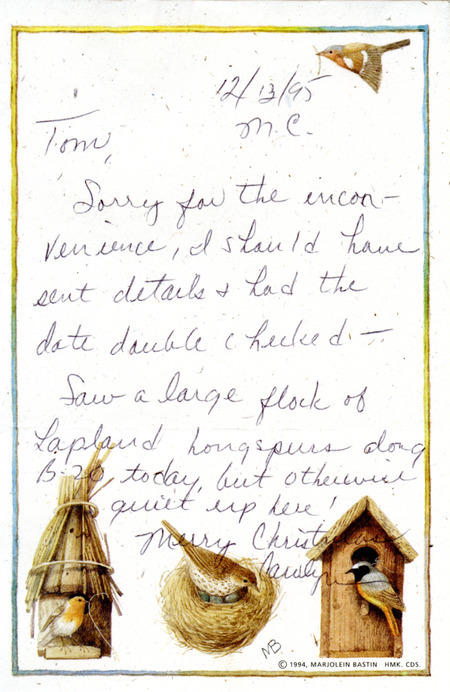 12/13/95
M.C.
Tom,
Sorry for the incon-
venience, I should have
sent details & had the
date double checked.
Saw a large flock of
Lapland longspurs along
B-20 today, but otherwise
quiet up here!
Merry Christmas
Carolyn
MB.
© 1994, MARJOLEIN BASTIN HMK. CDS.